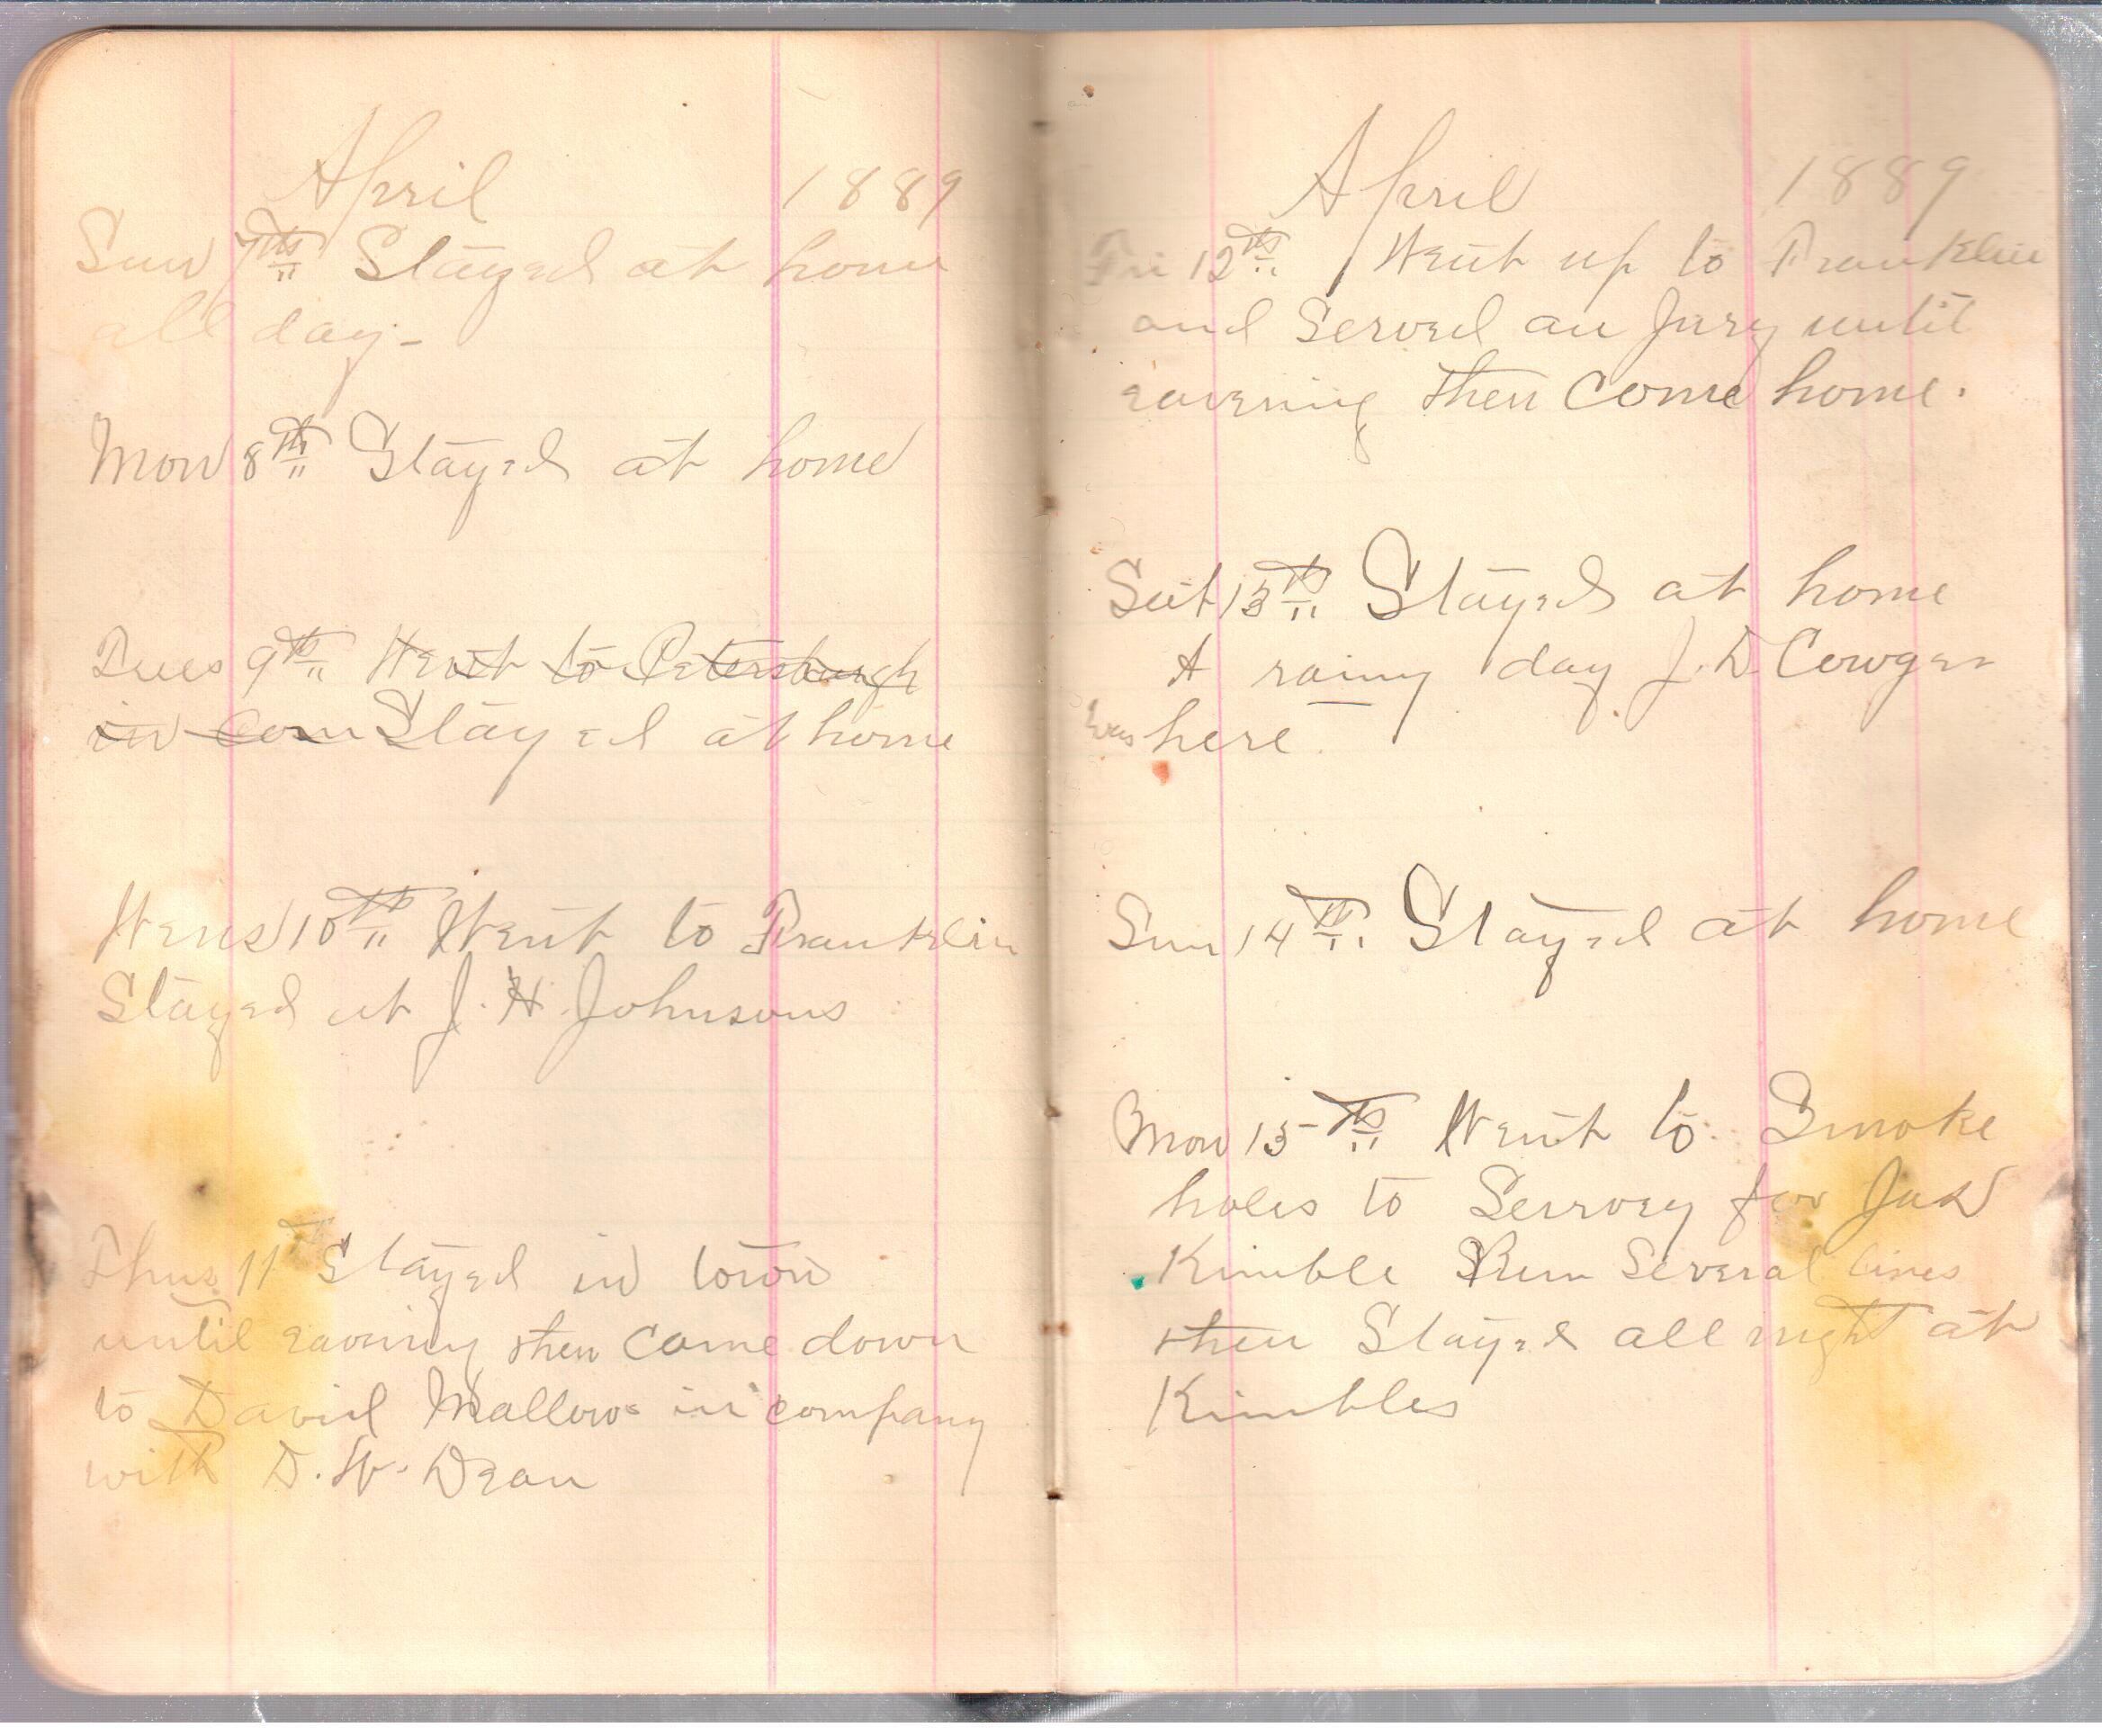 April 1889
Sun 7th Stayed at home
all day-
Mon 8th Stayed at home
Tues 9th Went to Petersburgh
in com Stayed at home
Wens 10th Went to Franklin
Stayed at J. H. Johnsons
Thus 11th Stayed in town
until eavening then came down
to David Mallows in company
with D. W. Dean
April 1889
Fri 12th Went up to Franklin
and Served on Jury until
eavening then Come home.
Sat 13th Stayed at home
A rainy day J. D. Cowger
was here.
Sun 14th Stayed at home
Mon 15th Went to Smoke
holes to Survey for
Kimble Run Several lines
then Stayed all night at
Kimbles